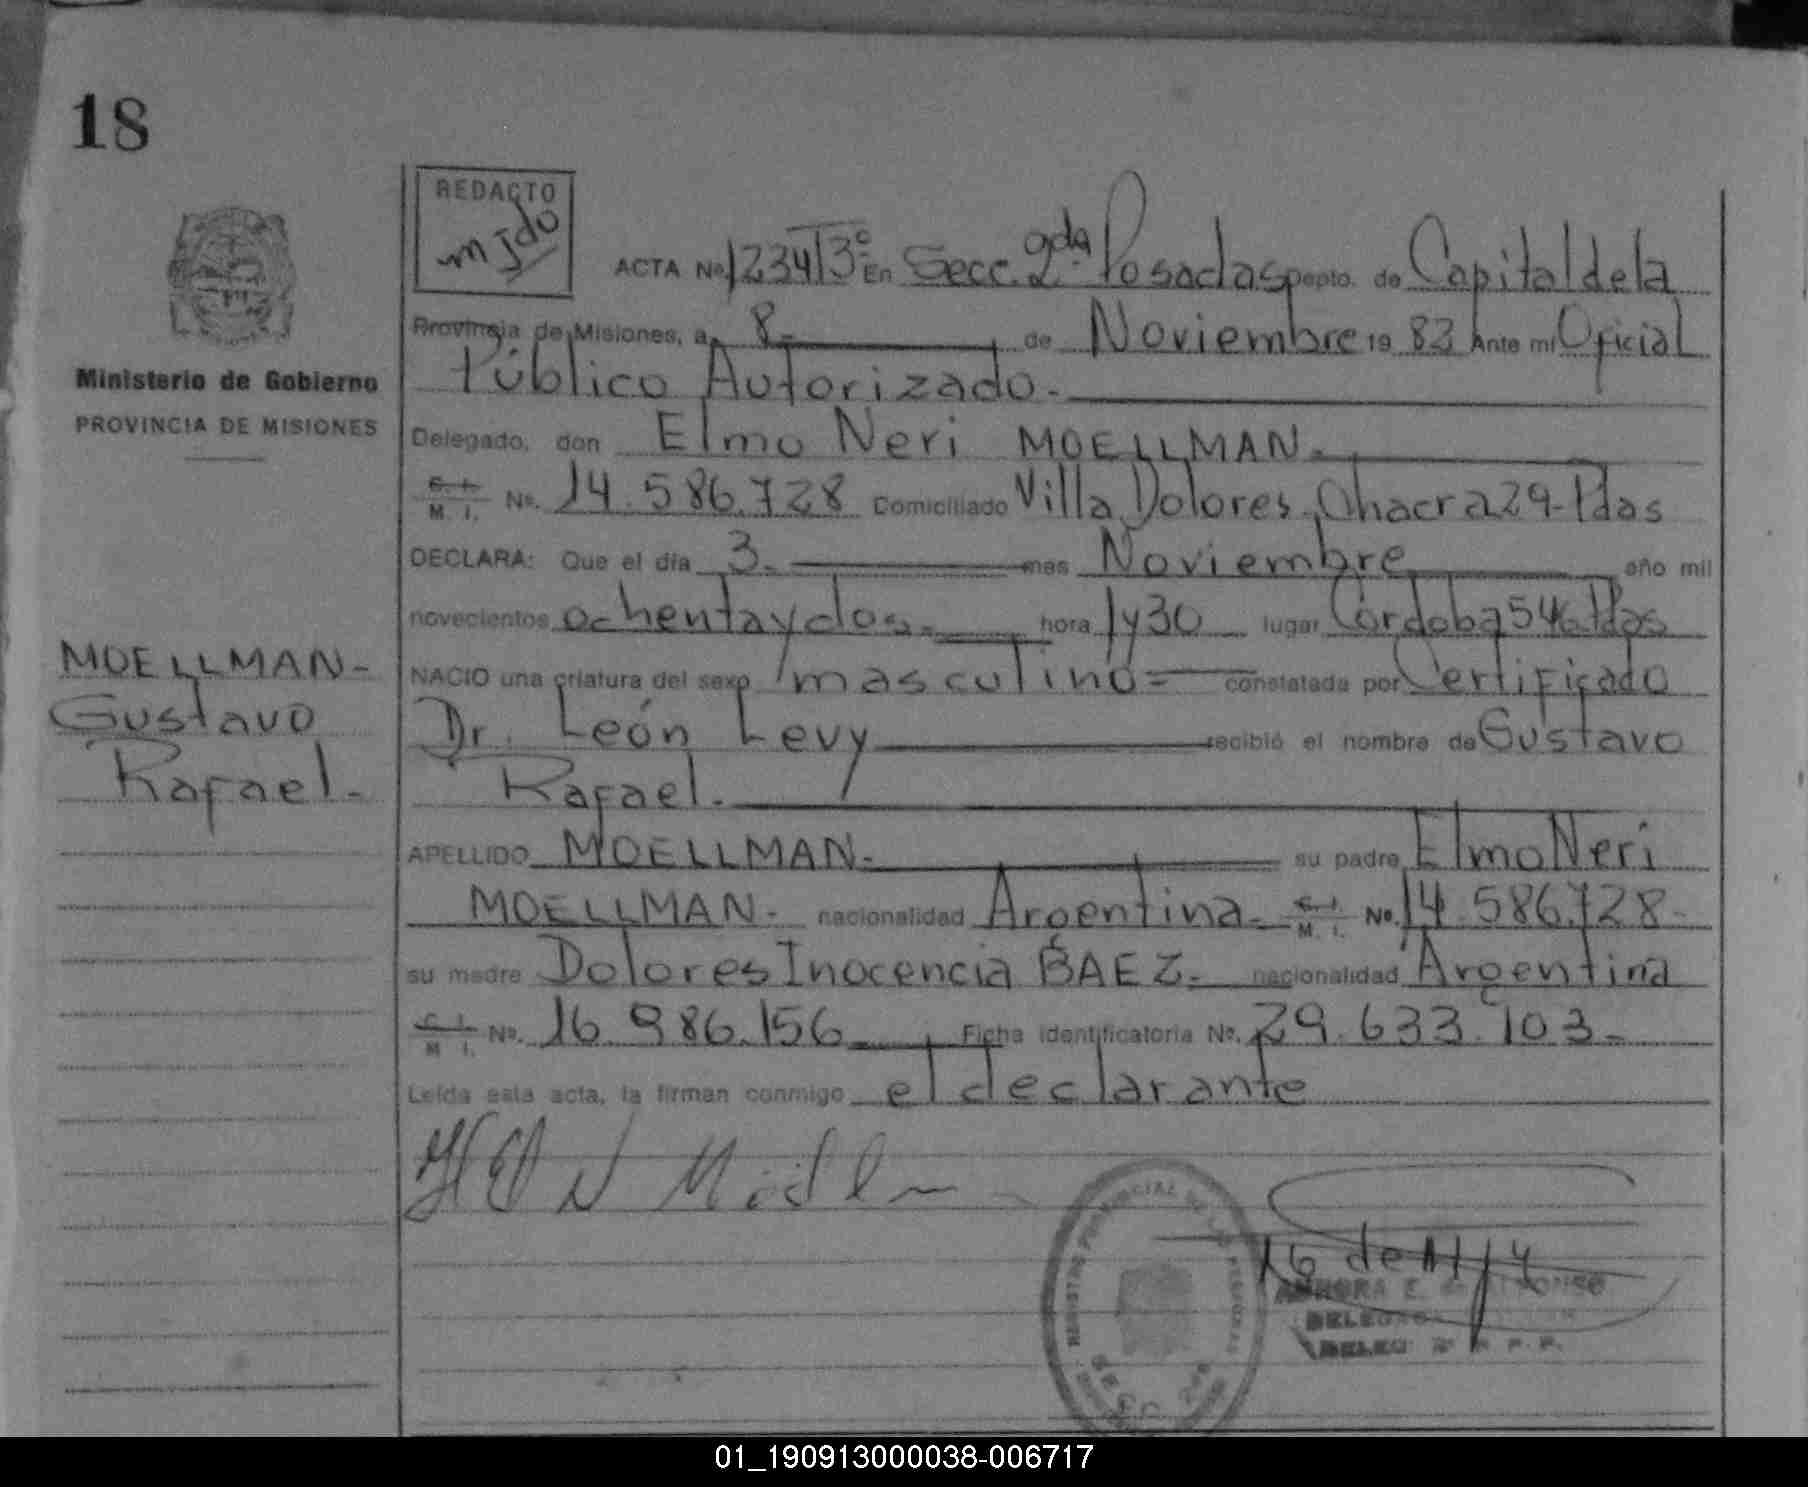 18
REDACTO
mjdo
ACTA No. 1234 T3º En Secc. 2da Posadas Depto. de Capital de la
Provincia de Misiones, a 8 - de Noviembre 19 83 Ante mi Oficial
Público Autorizado.-
Ministerio de Gobierno
PROVINCIA DE MISIONES
Delegado, don Elmo Neri MOELLMAN.-
C. I. M. I. No. 14.586.728 Domiciliado Villa Dolores, Chacra 29-Pdas
DECLARA: Que el día 3.- mes Noviembre año mil
novecientos ochenta y dos.- hora 1 y 30 lugar Córdoba 546 Pdas
MOELLMAN-
Gustavo
Rafael.-
NACIO una criatura del sexo masculino= constatada por Certificado
Dr. León Levy recibió el nombre de Gustavo
Rafael.-
APELLIDO MOELLMAN.- su padre Elmo Neri
MOELLMAN.- nacionalidad Argentina.- C. I. M. I. No. 14.586.728-
su madre Dolores Inocencia BAEZ.- nacionalidad Argentina
C. I. M. I. No. 16.986.156 Ficha identificatoria No. 29.633.103-
Leída esta acta, la firman conmigo el declarante
REGISTRO PROVINCIAL DE LAS PERSONAS
SECC. 2da
16 de
E.
01_190913000038-006717